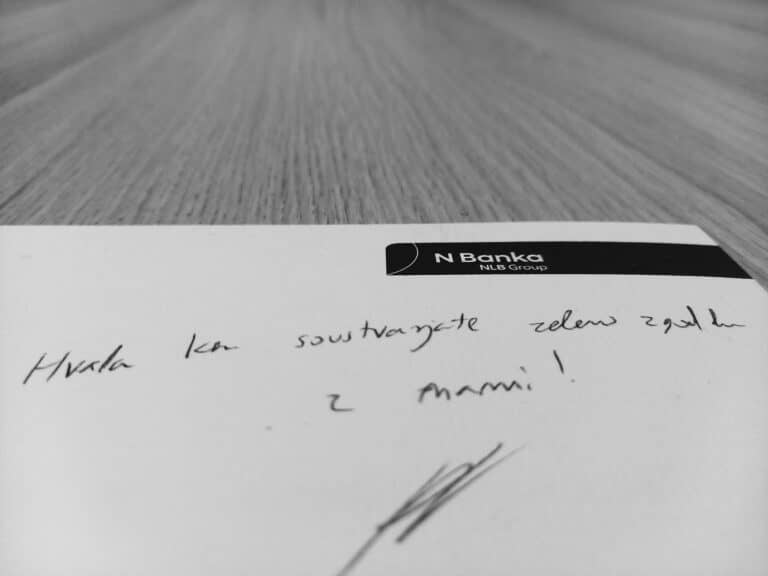 N Banka
NLB Group
Hvala ker soustvarjate zeleno zgodbo
z nami!